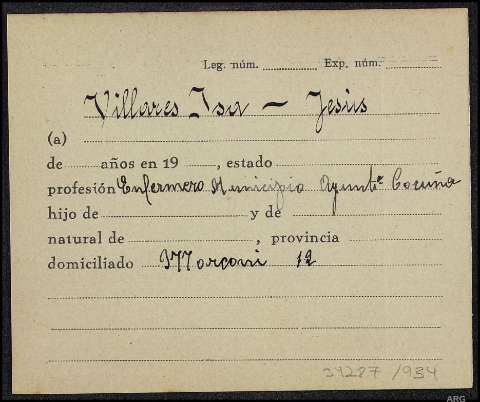 Leg. núm. Exp. núm.
Villares Isa - Jesús
(a)
de años en 19 , estado
profesión Enfermero Municipio Ayuntº Coruña
hijo de y de
natural de , provincia
domiciliado Marconi 12
34287/934
ARG